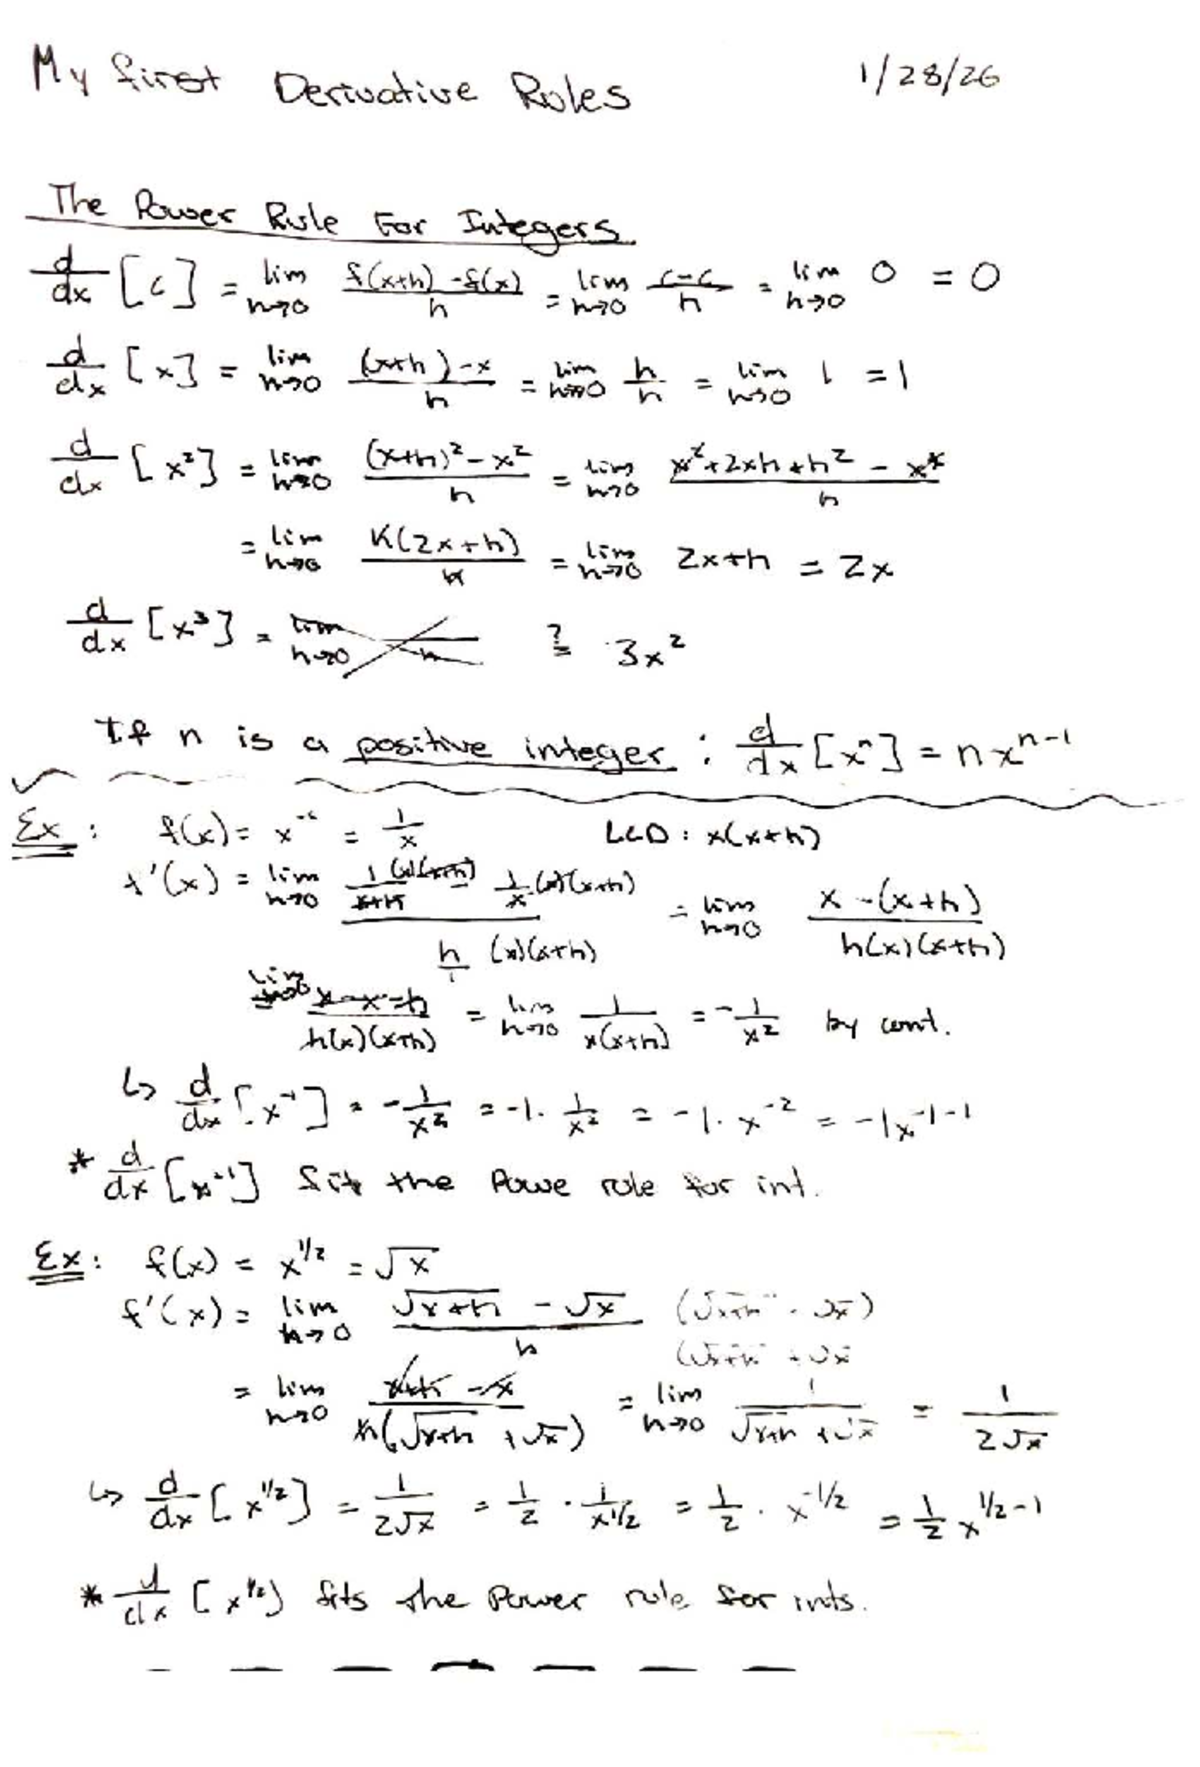 My first Derivative Rules 1/28/26
The Power Rule For Integers
d/dx [c] = lim h→0 (f(x+h) - f(x))/h = lim h→0 (c-c)/h = lim h→0 0 = 0
d/dx [x] = lim h→0 ((x+h) - x)/h = lim h→0 h/h = lim h→0 1 = 1
d/dx [x²] = lim h→0 ((x+h)² - x²)/h = lim h→0 (x² + 2xh + h² - x²)/h
= lim h→0 h(2x+h)/h = lim h→0 2x+h = 2x
d/dx [x³] = lim h→0 /h ?= 3x²
If n is a positive integer : d/dx [xⁿ] = nxⁿ⁻¹
Ex : f(x) = x⁻¹ = 1/x LCD : x(x+h)
f'(x) = lim h→0 (1/(x+h) (x)(x+h) - 1/x (x)(x+h))/(h/1 (x)(x+h)) = lim h→0 (x - (x+h))/(h(x)(x+h))
= lim h→0 (x - x - h)/(h(x)(x+h)) = lim h→0 1/(x(x+h)) = - 1/x² by cont.
↳ d/dx [x⁻¹] = - 1/x² = -1 · 1/x² = -1 · x⁻² = -1x⁻¹⁻¹
* d/dx [x⁻¹] fits the Powe rule for int.
Ex : f(x) = x^1/2 = √x
f'(x) = lim h→0 (√(x+h) - √x)/h (√(x+h) + √x)/(√(x+h) + √x)
= lim h→0 (x+h - x)/(h(√(x+h) + √x)) = lim h→0 1/(√(x+h) + √x) = 1/(2√x)
↳ d/dx [x^1/2] = 1/(2√x) = 1/2 · 1/x^1/2 = 1/2 · x^-1/2 = 1/2 x^1/2-1
* d/dx [x^1/2] fits the Power rule for ints.